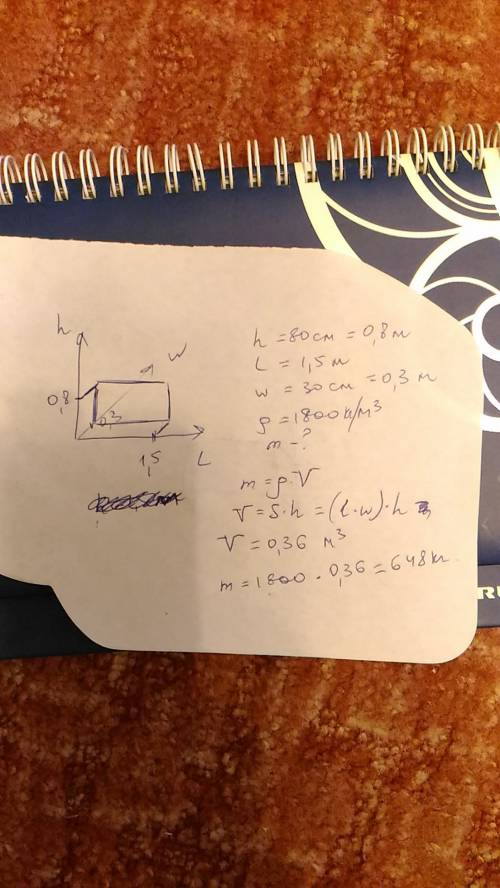 h
w
0,8
0,3
1,5
L
h = 80 см = 0,8 м
L = 1,5 м
w = 30 см = 0,3 м
ρ = 1800 к/м³
m - ?
m = ρ·V
V = S·h = (l·w)·h
V = 0,36 м³
m = 1800 · 0,36 = 648 кг
RU